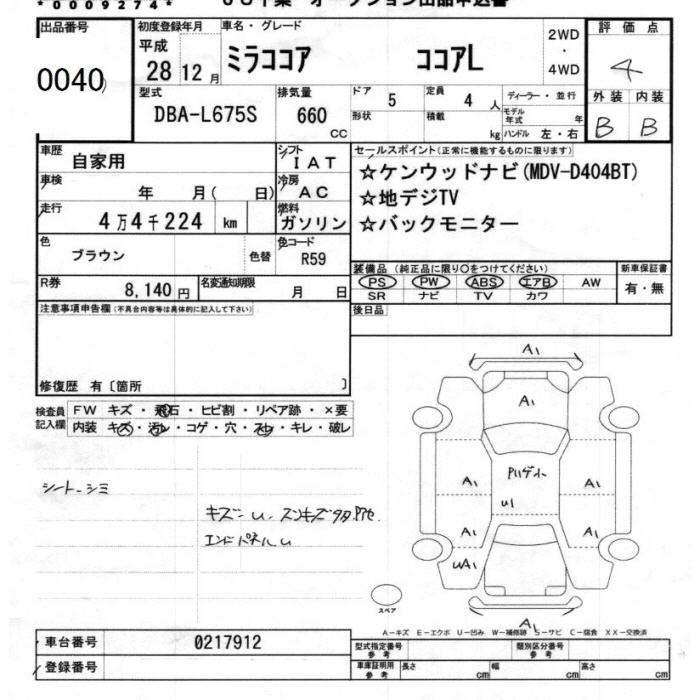 *0009274*
出品番号
0040
初度登録年月
平成
28 12 月
車名・グレード
ミラココア ココアL
2WD
・
4WD
評価点
4
外装 内装
B B
型式
DBA-L675S
排気量
660
CC
ドア
5
定員
4 人
形状
積載
kg
ディーラー・並行
モデル
年式 年
ハンドル 左・右
車歴
自家用
シフト
IAT
車検
年 月( 日)
冷房
AC
走行
4万4千224 km
燃料
ガソリン
色
ブラウン
色替
色コード
R59
R券
8,140 円
名変通知期限
月 日
セールスポイント(正常に機能するものに限ります)
☆ケンウッドナビ(MDV-D404BT)
☆地デジTV
☆バックモニター
装備品 (純正品に限り〇をつけてください)
PS PW ABS エアB AW
SR ナビ TV カワ
新車保証書
有・無
後日品
注意事項申告欄(不具合内容等は具体的に記入して下さい)
修復歴 有〔箇所 〕
検査員
記入欄
FW キズ・飛石・ヒビ割・リペア跡・×要
内装 キズ・汚レ・コゲ・穴・スレ・キレ・破レ
シート-シミ
キズ-U
エンドパネルU
A1
A1
U1
A1 A1
A1 A1
UA1
A1
スペア
A-キズ E-エクボ U-凹み W-補修跡 S-サビ C-腐食 XX-交換済
車台番号
0217912
登録番号
型式指定番号
参考
類別区分番号
参考
車庫証明用
参考
長さ cm 幅 cm 高さ cm